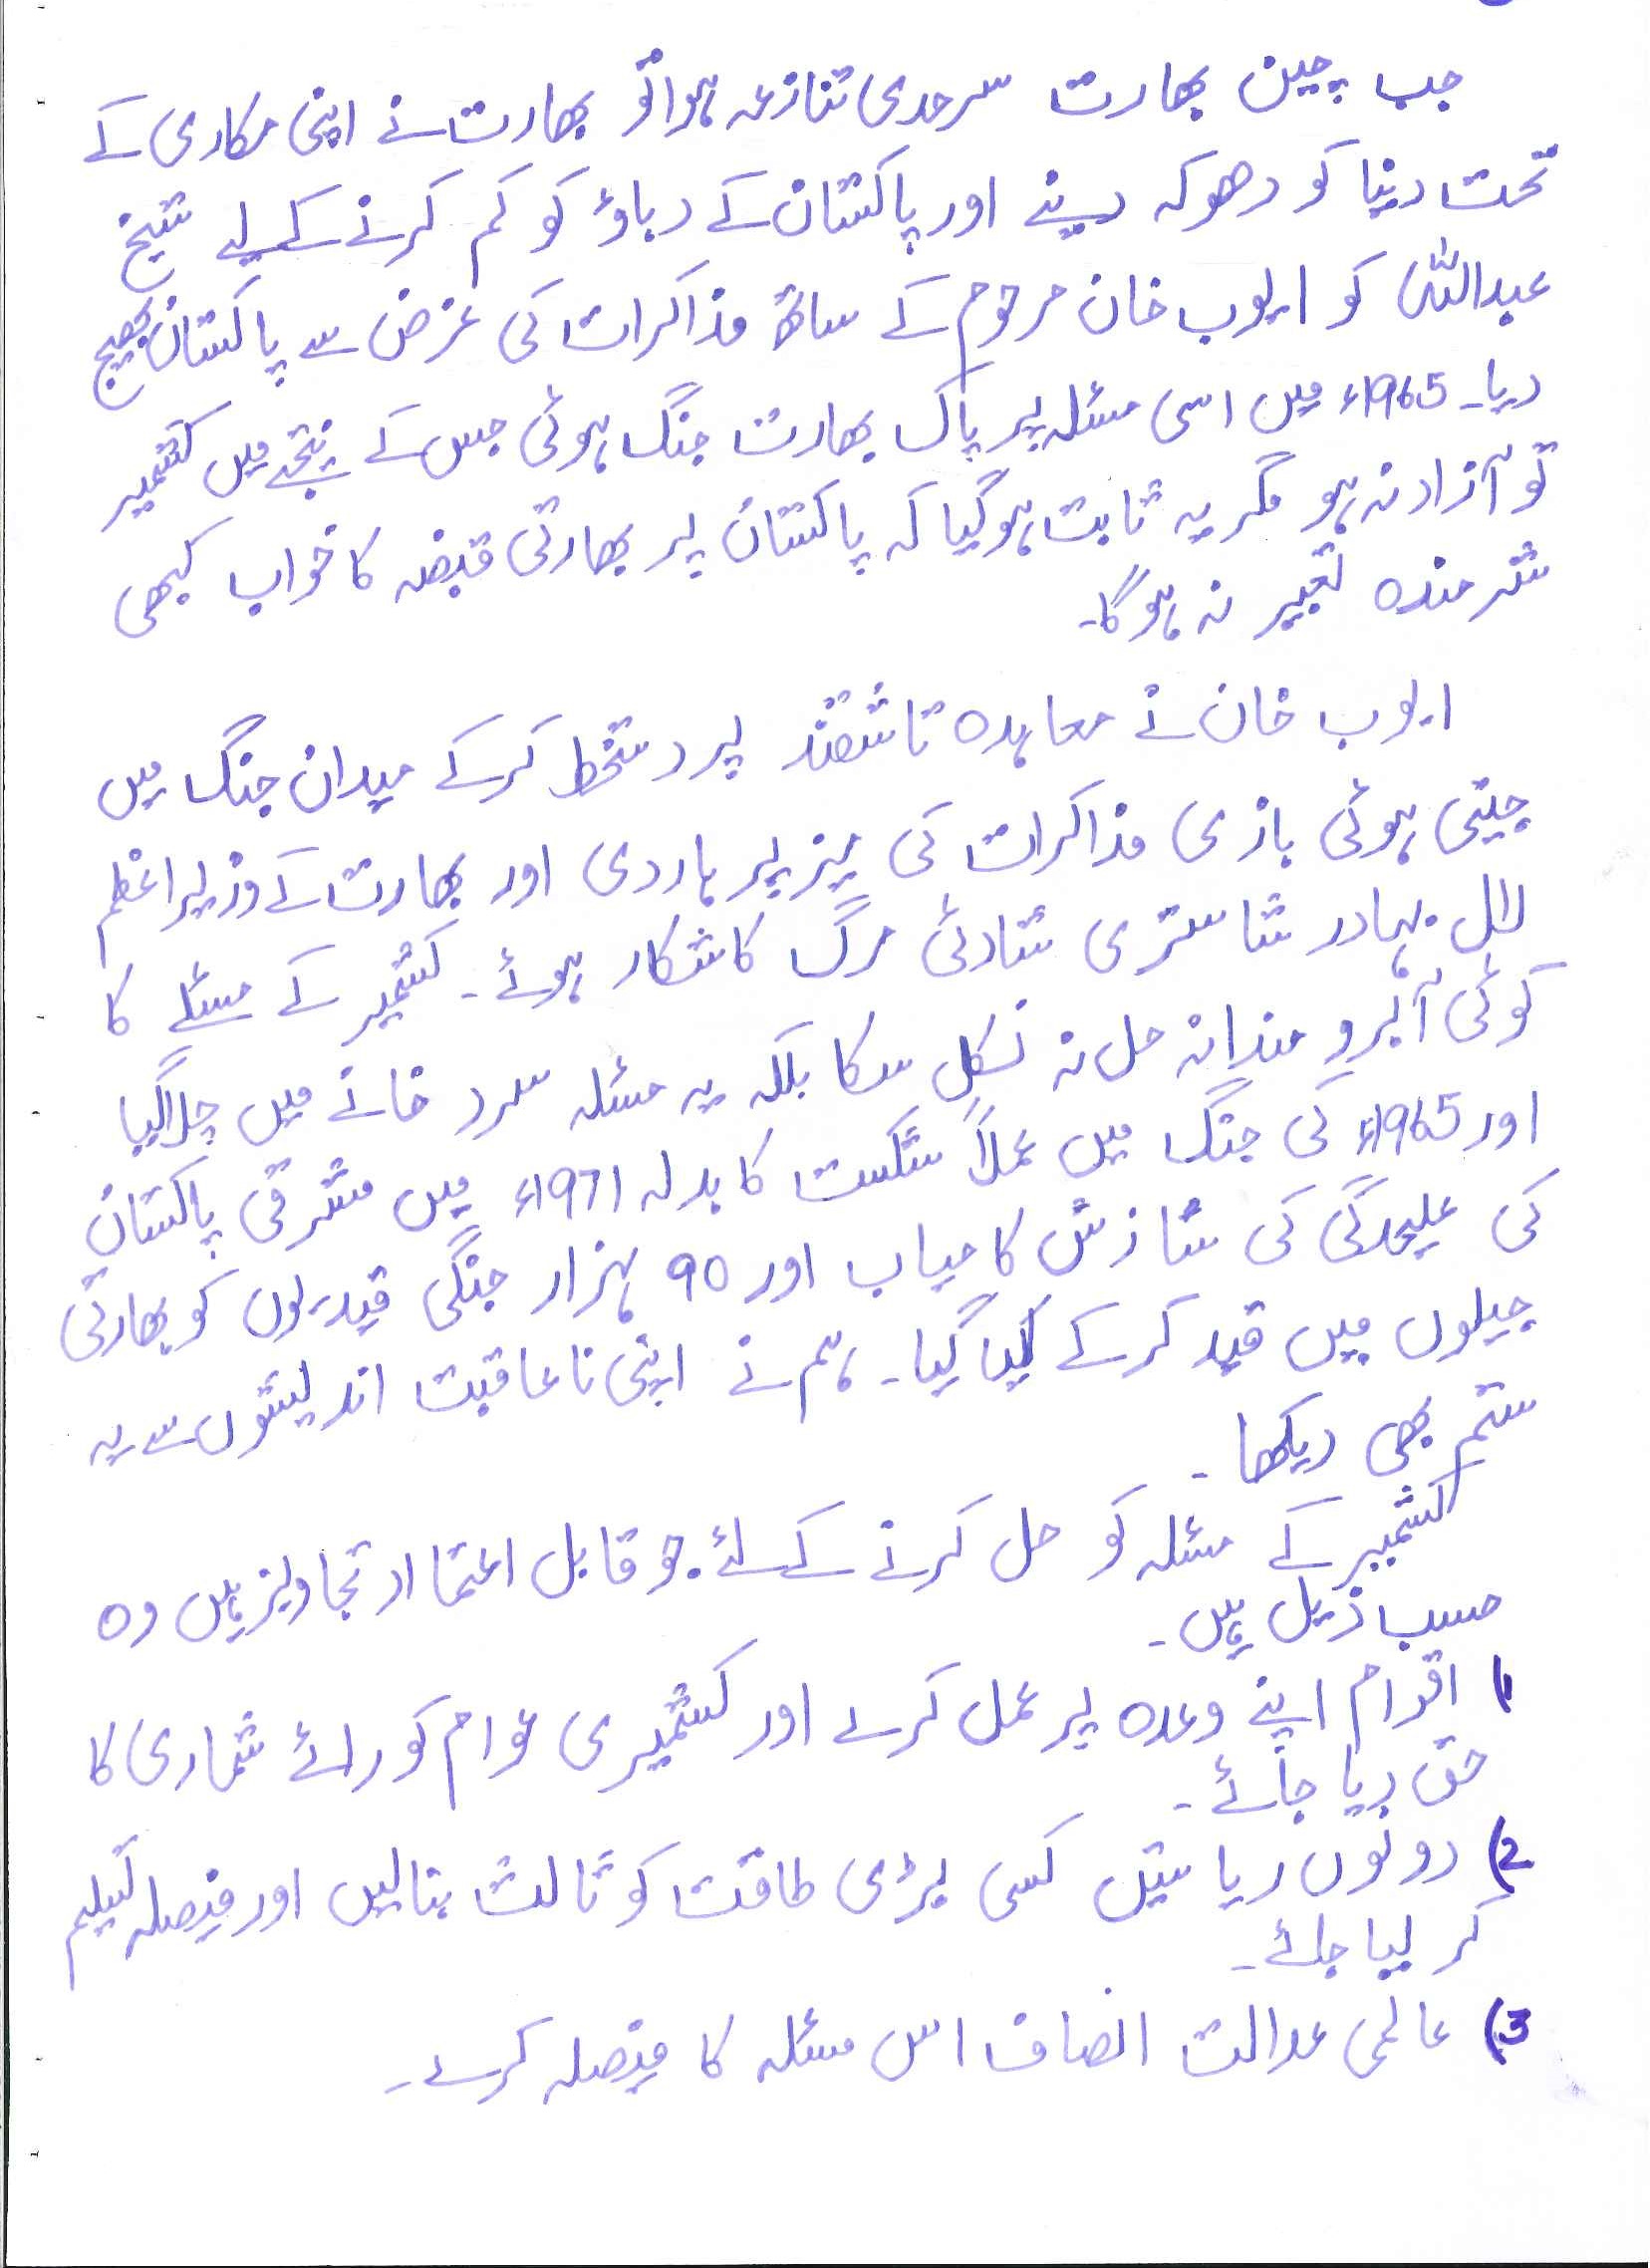 جب چین بھارت سرحدی تنازعہ ہوا تو بھارت نے اپنی مکاری کے
تحت دنیا کو دھوکہ دینے اور پاکستان کے دباؤ کو کم کرنے کے لیے شیخ
عبداللہ کو ایوب خان مرحوم کے ساتھ مذاکرات کی غرض سے پاکستان بھیج
دیا۔ 1965ء میں اسی مسئلہ پر پاک بھارت جنگ ہوئی جس کے نتیجے میں کشمیر
تو آزاد نہ ہو مگر یہ ثابت ہوگیا کہ پاکستان پر بھارتی قبضہ کا خواب کبھی
شرمندہ تعبیر نہ ہوگا۔
ایوب خان نے معاہدہ تاشقند پر دستخط کرکے میدان جنگ میں
جیتی ہوئی بازی مذاکرات کی میز پر ہار دی اور بھارت کے وزیراعظم
لال بہادر شاستری شادئی مرگ کا شکار ہوئے۔ کشمیر کے مسئلے کا
کوئی آبرو مندانہ حل نہ نکل سکا بلکہ یہ مسئلہ سرد خانے میں چلا گیا
اور 1965ء کی جنگ میں عملاً شکست کا بدلہ 1971ء میں مشرقی پاکستان
کی علیحدگی کی سازش کامیاب اور 90 ہزار جنگی قیدیوں کو بھارتی
جیلوں میں قید کرکے لیا گیا۔ ہم نے اپنی ناعاقبت اندیشوں سے یہ
ستم بھی دیکھا۔
کشمیر کے مسئلہ کو حل کرنے کے لئے جو قابل اعتماد تجاویز ہیں وہ
حسب ذیل ہیں۔
1) اقوام اپنے وعدہ پر عمل کرے اور کشمیری عوام کو رائے شماری کا
حق دیا جائے۔
2) دونوں ریاستیں کسی بڑی طاقت کو ثالث بنالیں اور فیصلہ تسلیم
کر لیا جائے۔
3) عالمی عدالت انصاف اس مسئلہ کا فیصلہ کرے۔